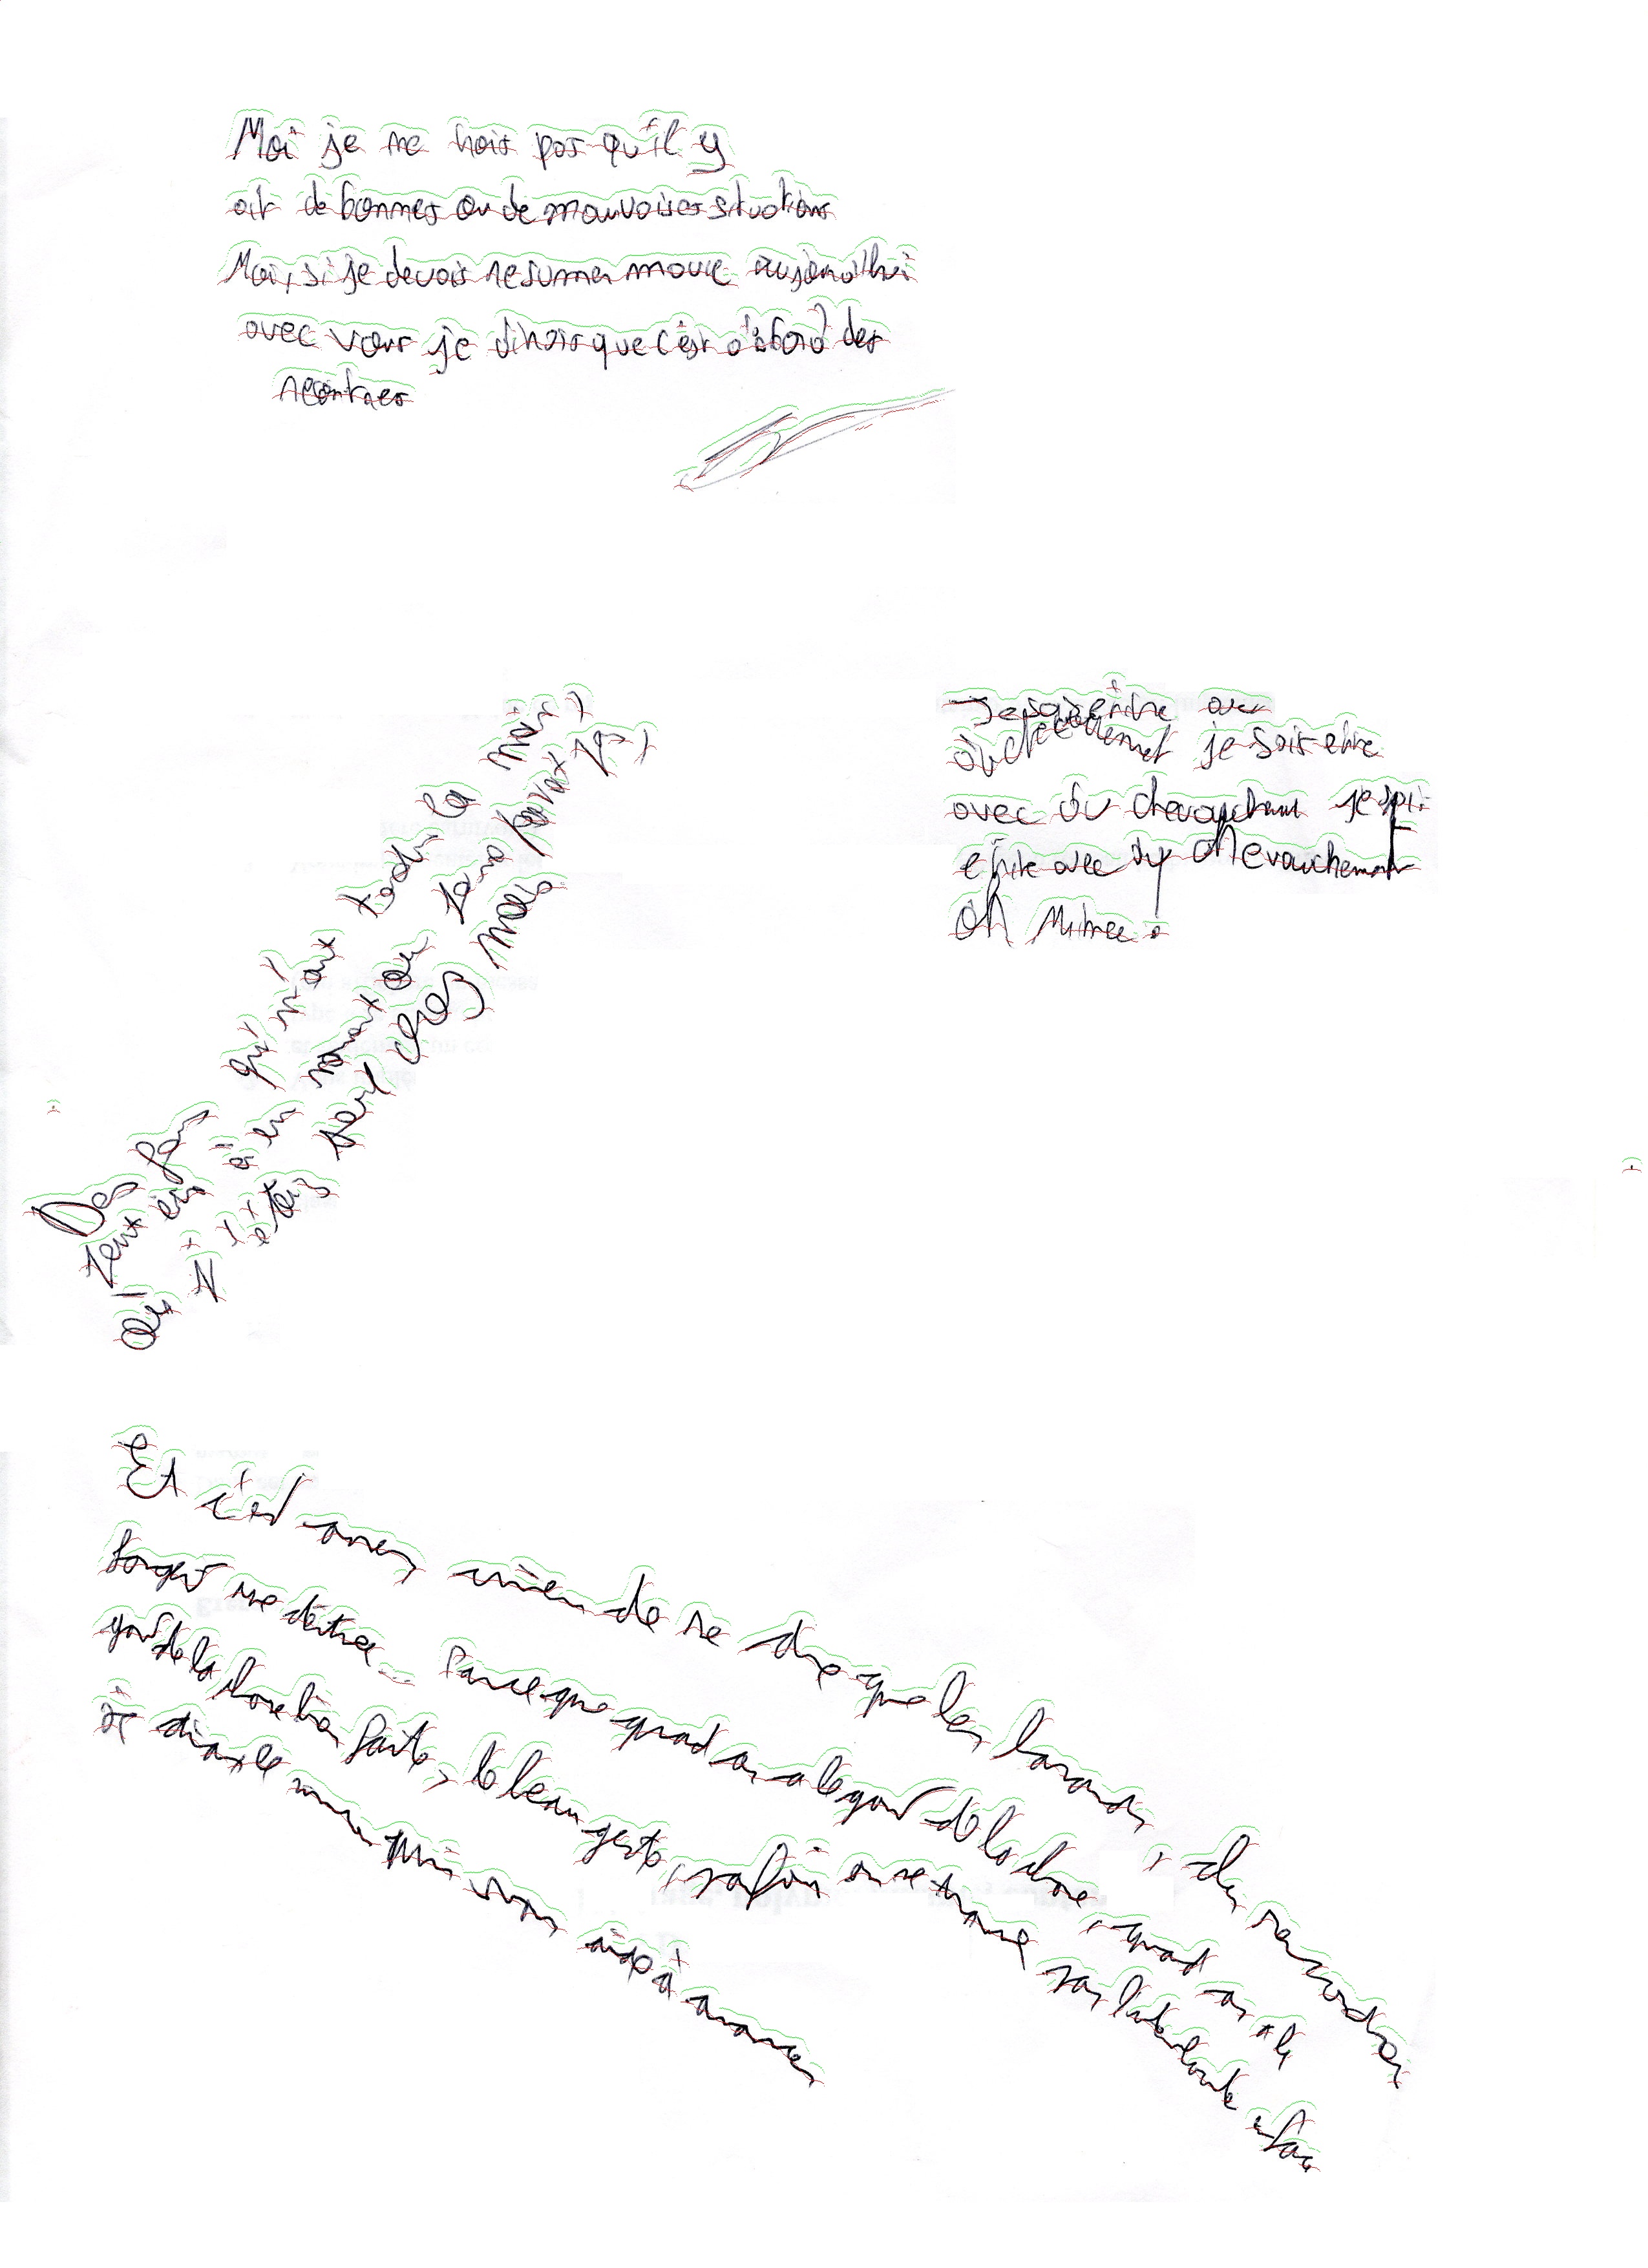 Moi je ne crois pas qu'il y
ait de bonnes ou de mauvaises situations
Moi, si je devais resumer ma vie aujourd'hui
avec vous je dirais que c'est d'abord des
recontres
Des gens qui m'ont tendu la main,
peut être à un moment où je ne pouvais pas,
où j'étais seul chez moi
Je sais écrire avec
chevauchement je sais ecrire
avec du chevauchement je sais
ecrire avec du chevauchement
oh Mince.
Et c'est assez curieux de se dire que les hasards, les rencontres
forgent une destinée... Parce que quand on a le goût de la chose, quand on a le
goût de la chose bien faite, le beau geste, parfois on ne trouve pas l'interlocuteur en face
je dirais le miroir qui vous aide à avancer